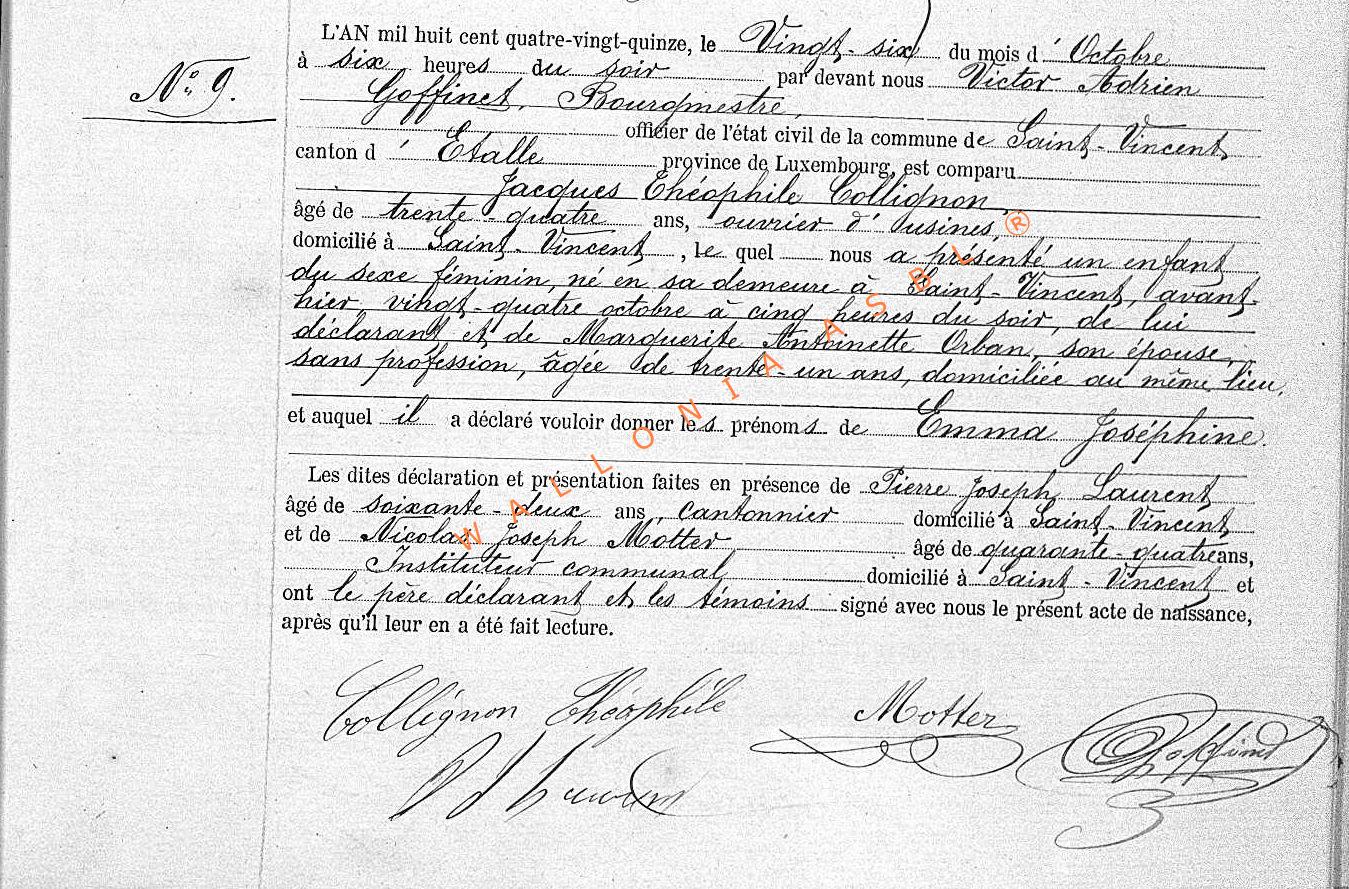 L'AN mil huit cent quatre-vingt-quinze, le Vingt-six du mois d' Octobre
N° 9.
à six heures du soir par devant nous Victor Adrien
Goffinet, Bourgmestre,
officier de l'état civil de la commune de Saint-Vincent
canton d' Etalle province de Luxembourg, est comparu
Jacques Théophile Collignon
âgé de trente-quatre ans, ouvrier d'usines,
domicilié à Saint-Vincent, le quel nous a présenté un enfant
du sexe féminin, né en sa demeure à Saint-Vincent, avant-
hier, vingt-quatre octobre à cinq heures du soir, de lui
déclarant et de Marguerite Antoinette Orban, son épouse,
sans profession, âgée de trente-un ans, domiciliée au même lieu,
et auquel il a déclaré vouloir donner les prénoms de Emma Joséphine.
Les dites déclaration et présentation faites en présence de Pierre Joseph Laurent
âgé de soixante-deux ans, cantonnier domicilié à Saint-Vincent
et de Nicolas Joseph Motter âgé de quarante-quatre ans,
Instituteur communal domicilié à Saint-Vincent et
ont le père déclarant et les témoins signé avec nous le présent acte de naissance,
après qu'il leur en a été fait lecture.
Collignon Théophile
Motter
Goffinet
P J Laurent
WALLONIA ASBL ®